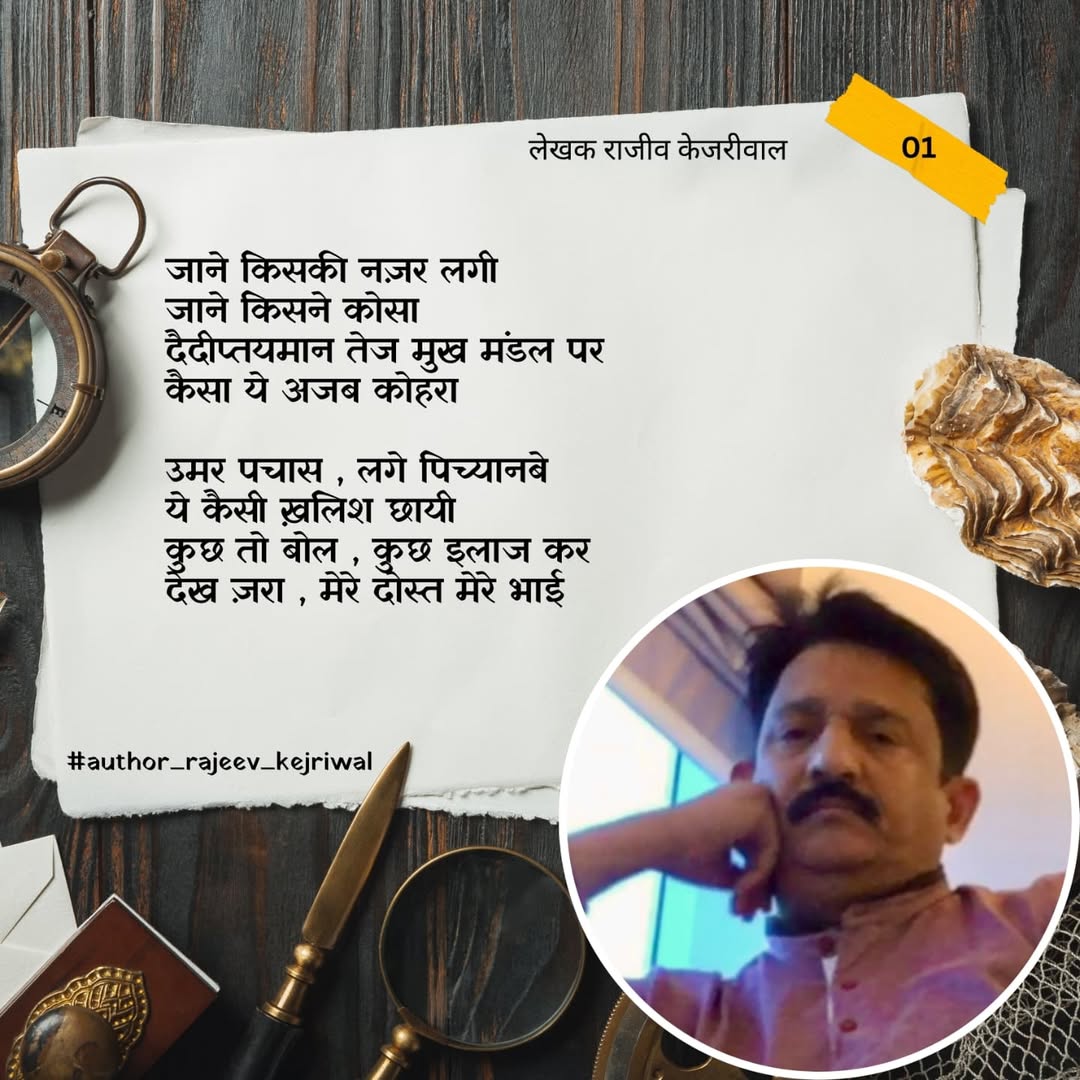 लेखक राजीव केजरीवाल
01
जाने किसकी नज़र लगी
जाने किसने कोसा
दैदीप्तयमान तेज मुख मंडल पर
कैसा ये अजब कोहरा
उमर पचास , लगे पिच्यानबे
ये कैसी ख़लिश छायी
कुछ तो बोल , कुछ इलाज कर
देख ज़रा , मेरे दोस्त मेरे भाई
#author_rajeev_kejriwal
N
E